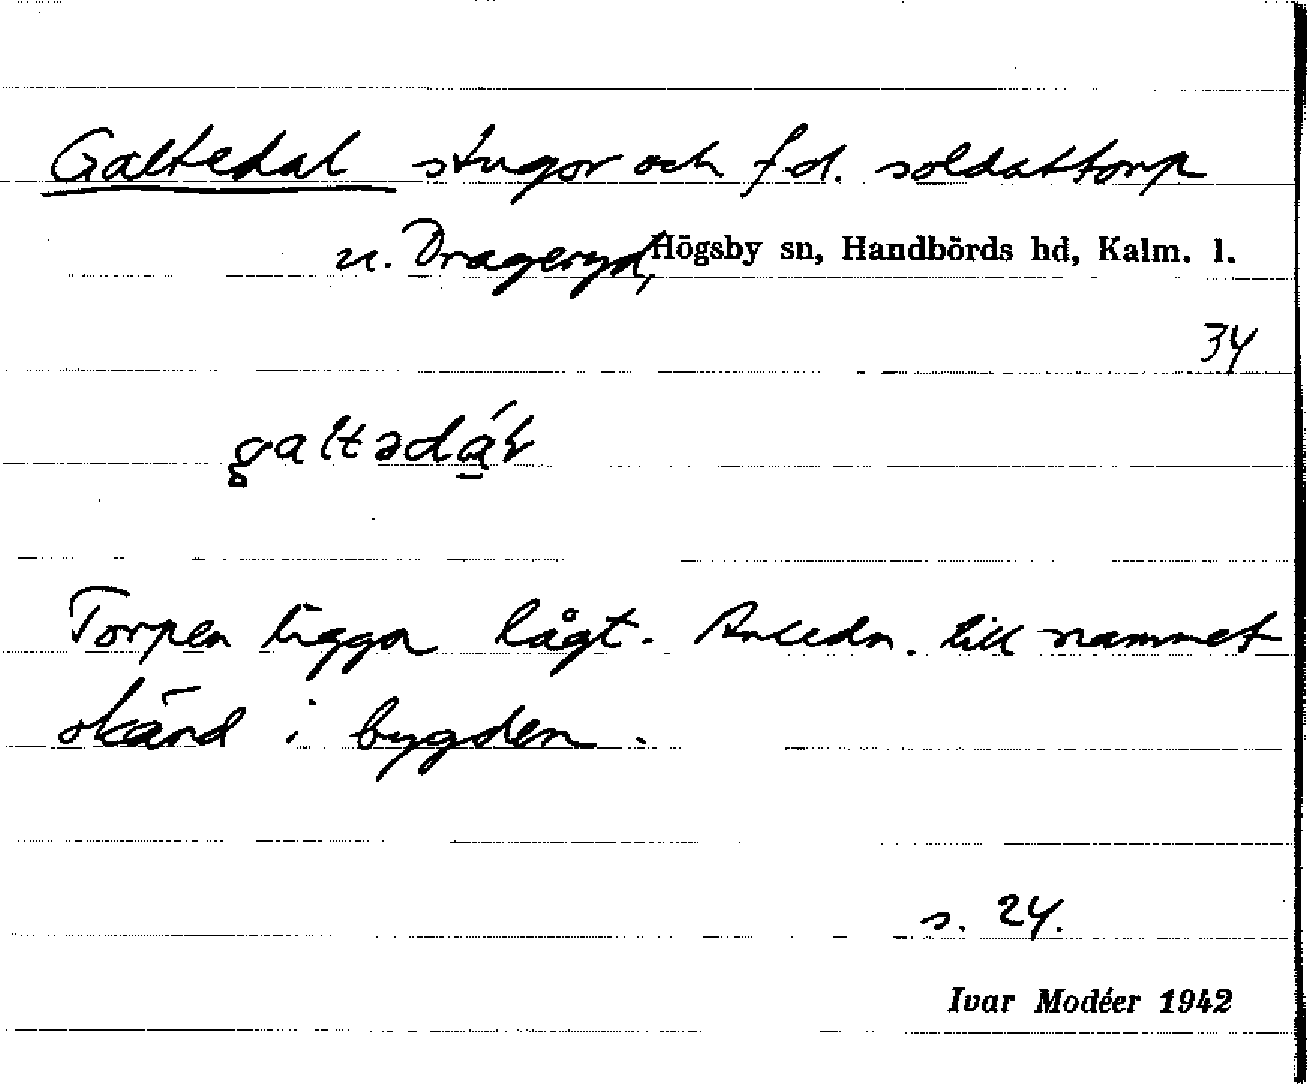 Galtedal stugor och f.d. soldattorp
u. Drageryd, Högsby sn, Handbörds hd, Kalm. l.
34
galtədá̱ɫ
Torpen ligga lågt. Anledn. till namnet
okänd i bygden.
s. 24.
Ivar Modéer 1942